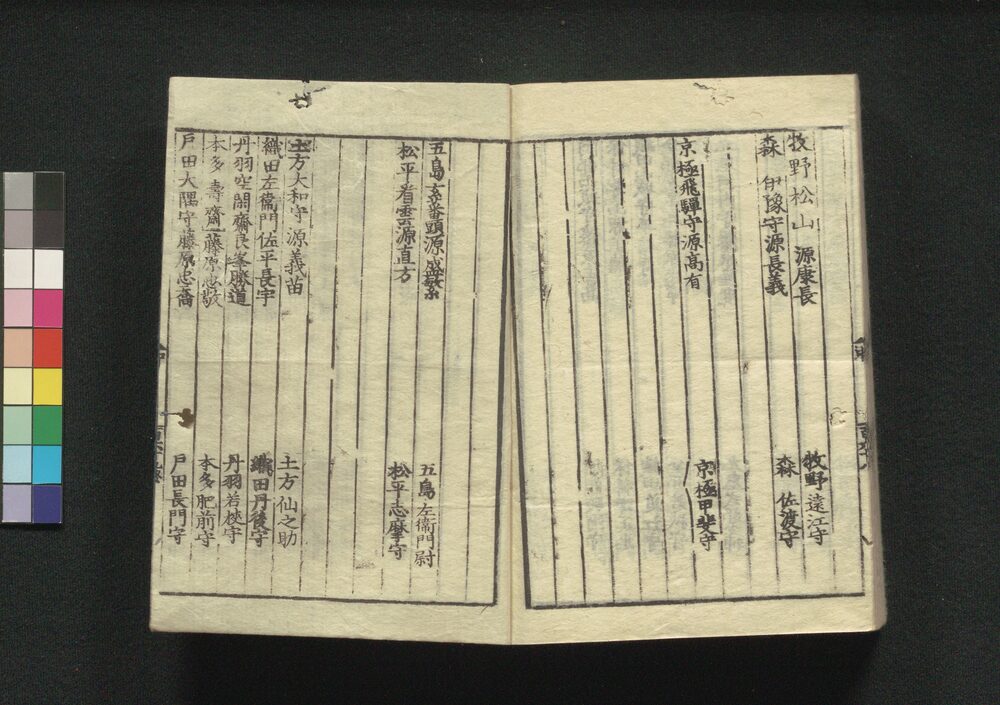 牧野松山 源康長
牧野遠江守
森 伊豫守源長義
森 佐渡守
京極飛騨守源高有
京極甲斐守
五島玄番頭源盛繁
五島左衞門尉
松平看雲源直方
松平志摩守
土方大和守源義苗
土方仙之助
織田左衞門佐平長宇
織田丹後守
丹羽空閑齋良峯勝道
丹羽若狹守
本多壽齋藤原忠敬
本多肥前守
戸田大隅守藤原忠喬
戸田長門守